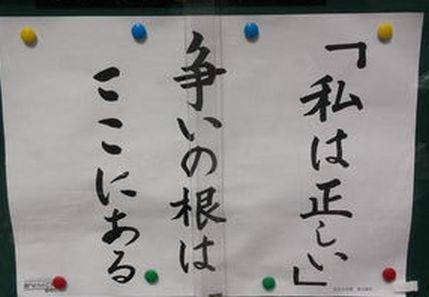 「私は正しい」
争いの根は
ここにある